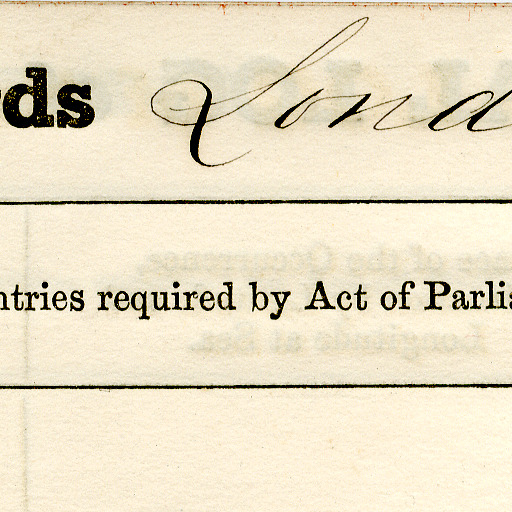 rds Lond
ntries required by Act of Parlia